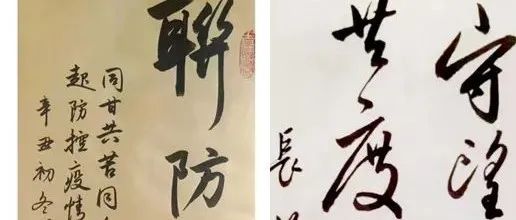 聯防
同甘共苦同
起防控疫情
辛丑初冬
守望
共度
長